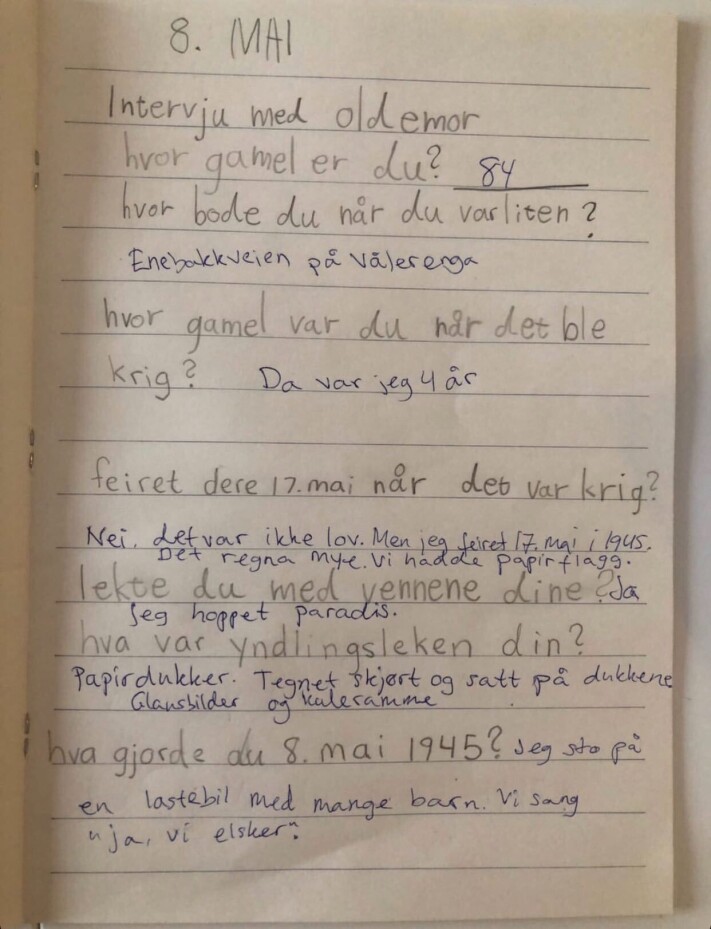 8. MAI
Intervju med oldemor
hvor gamel er du? 84
hvor bode du når du varliten?
Enebakkveien på Vålerenga
hvor gamel var du når det ble
krig? Da var jeg 4 år
feiret dere 17. mai når det var krig?
Nei, det var ikke lov. Men jeg feiret 17. mai i 1945.
Det regna mye. Vi hadde papirflagg.
lekte du med vennene dine? Ja
Jeg hoppet paradis.
hva var yndlingsleken din?
Papirdukker. Tegnet skjørt og satt på dukkene
Glansbilder og kuleramme
hva gjorde du 8. mai 1945? Jeg sto på
en lastebil med mange barn. Vi sang
"ja, vi elsker".